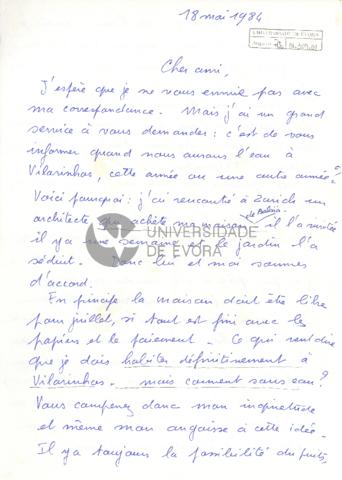 18 mai 1984
UNIVERSIDADE DE ÉVORA
Cher ami,
J'espère que je ne vous ennuie pas avec
ma correspondance. Mais j'ai un grand
service à vous demander : c'est de vous
informer quand nous aurons l'eau à
Vilarinhos, cette année ou une autre année?
Voici pourquoi : j'ai rencontré à Zurich un
architecte qui achète ma maison, il l'a visitée
il y a une semaine et le jardin l'a
séduit. Donc lui et moi sommes
d'accord.
UNIVERSIDADE
DE ÉVORA
En principe la maison doit être libre
pour juillet, si tout est fini avec les
papiers et le paiement. Ce qui veut dire
que je dois habiter définitivement à
Vilarinhos. mais comment sans eau?
Vous comprenez donc mon inquiétude
et même mon angoisse à cette idée.
Il y a toujours la possibilité du puits,